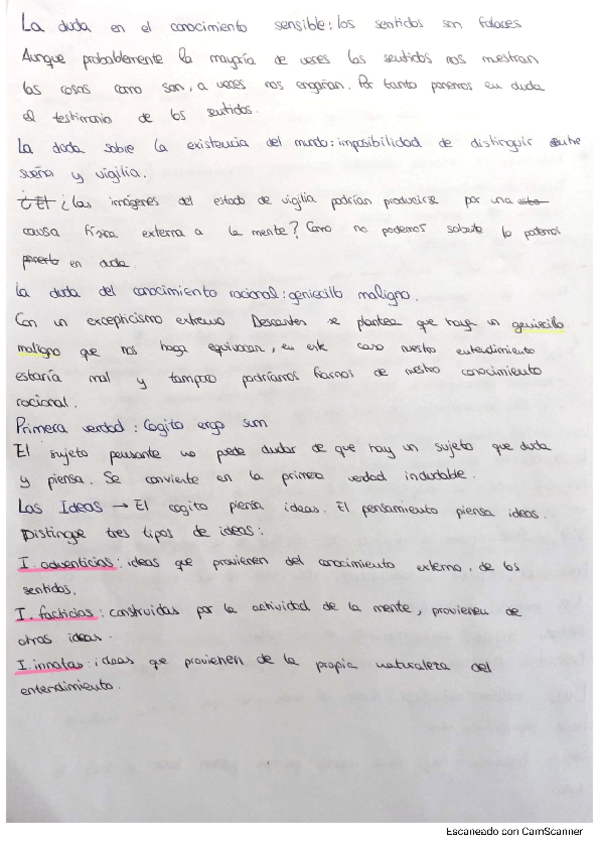 La duda en el conocimiento sensible: los sentidos son falaces
Aunque probablemente la mayoría de veces los sentidos nos muestran
las cosas como son, a veces nos engañan. Por tanto ponemos en duda
el testimonio de los sentidos.
La duda sobre la existencia del mundo: imposibilidad de distinguir entre
sueño y vigilia.
¿El ¿las imágenes del estado de vigilia podrían producirse por una esta
causa física externa a la mente? Como no podemos saberlo lo podemos
ponerlo en duda
La duda del conocimiento racional: geniecillo maligno.
Con un excepticismo extremo Descartes se plantea que haya un geniecillo
maligno que nos haga equivocarnos, en este caso nuestro entendimiento
estaría mal y tampoco podríamos fiarnos de nuestro conocimiento
racional.
Primera verdad: Cogito ergo sum
El sujeto pensante no puede dudar de que hay un sujeto que duda
y piensa. Se convierte en la primera verdad indudable.
Las Ideas → El cogito piensa ideas. El pensamiento piensa ideas.
Distingue tres tipos de ideas:
I. adventicias: ideas que provienen del conocimiento externo, de los
sentidos.
I. facticias: construidas por la actividad de la mente, provienen de
otras ideas.
I. innatas: ideas que provienen de la propia naturaleza del
entendimiento.
Escaneado con CamScanner